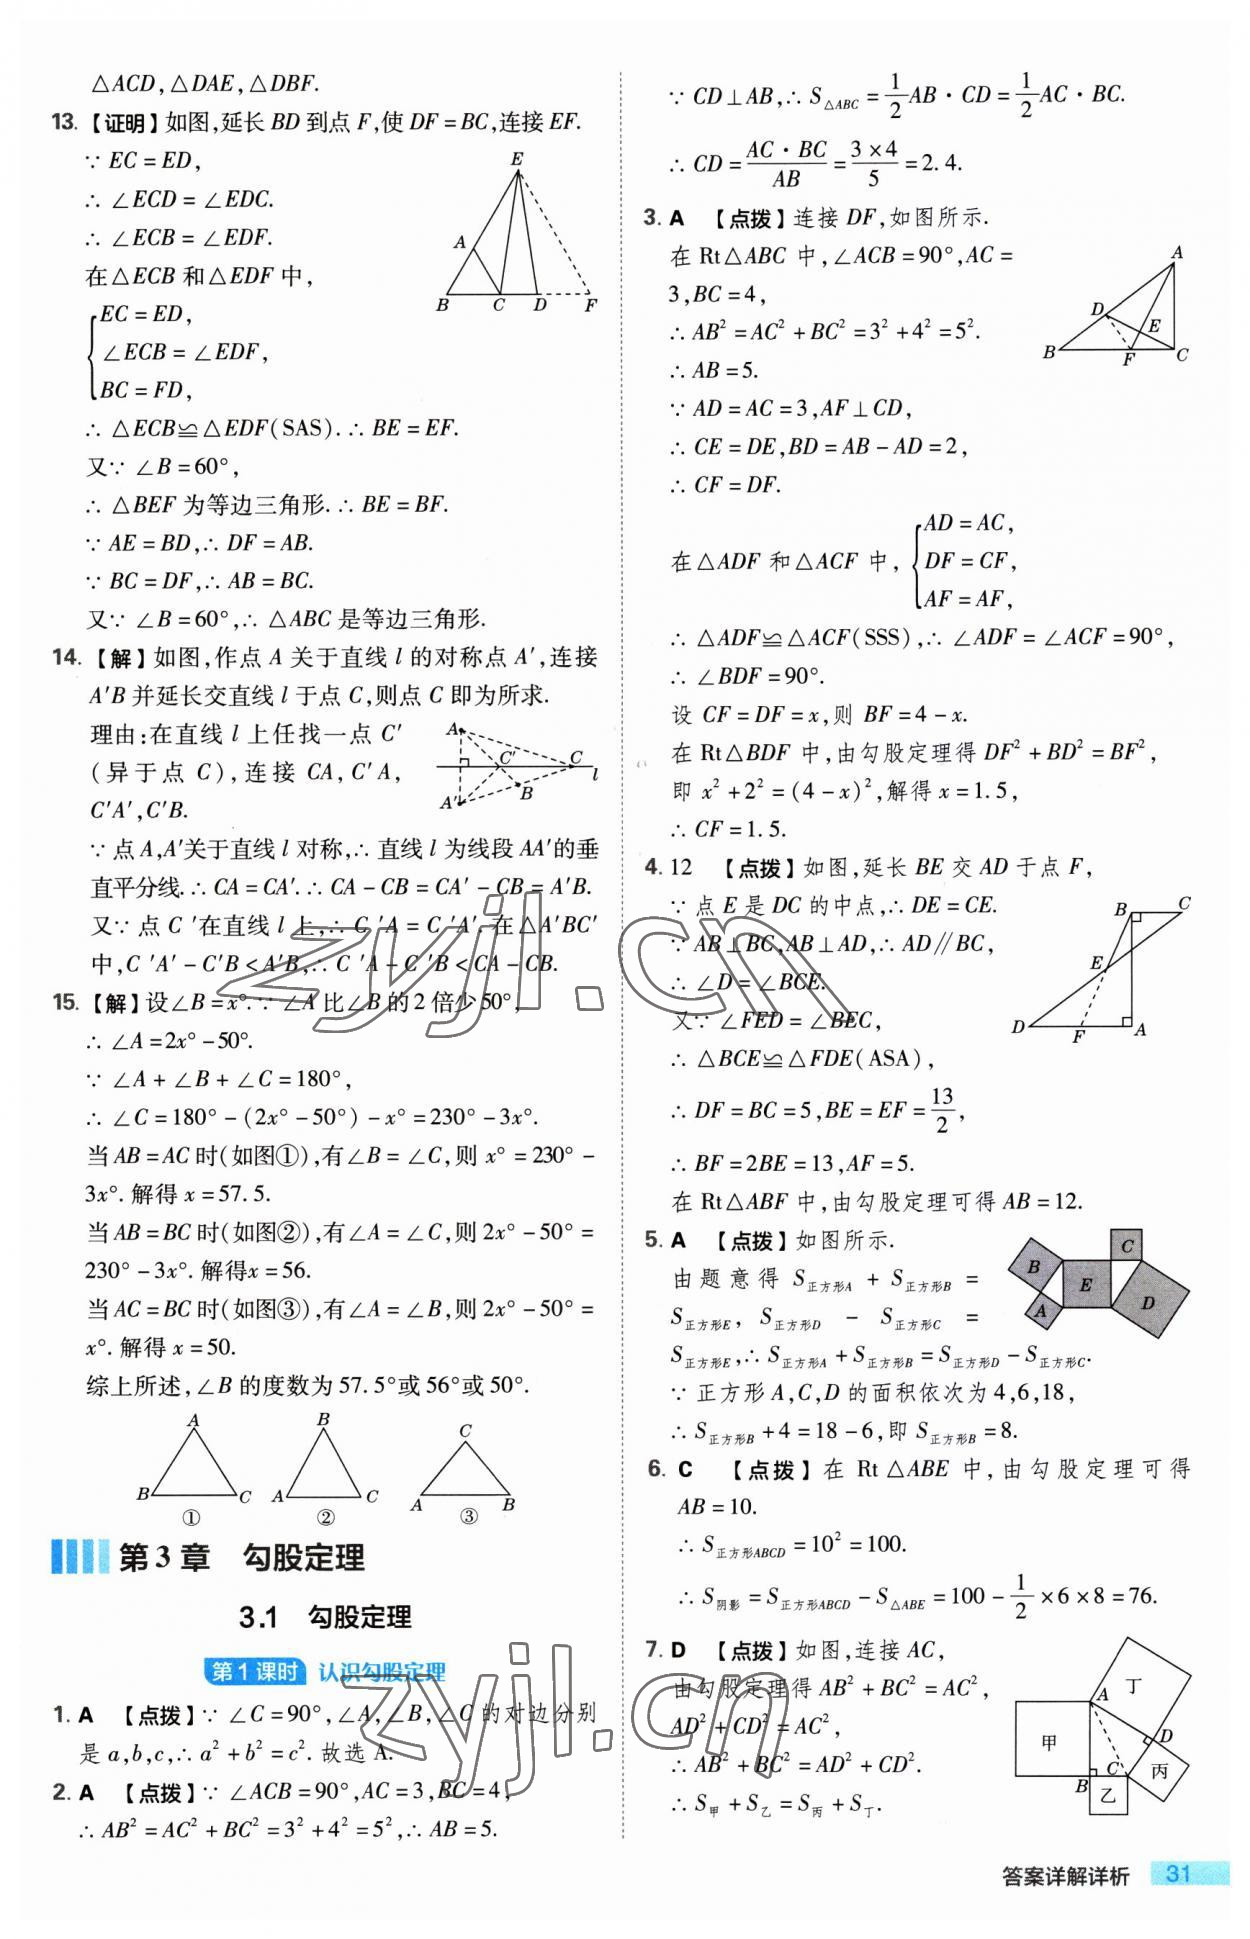 △ACD,△DAE,△DBF.
13.【证明】如图,延长 BD 到点 F,使 DF=BC,连接 EF.
∵ EC=ED,
∴ ∠ECD=∠EDC.
∴ ∠ECB=∠EDF.
在△ECB 和△EDF 中,
EC=ED,
∠ECB=∠EDF,
BC=FD,
E
A
B C D F
∴ △ECB≌△EDF(SAS).∴ BE=EF.
又∵ ∠B=60°,
∴ △BEF 为等边三角形.∴ BE=BF.
∵ AE=BD,∴ DF=AB.
∵ BC=DF,∴ AB=BC.
又∵ ∠B=60°,∴ △ABC 是等边三角形.
14.【解】如图,作点 A 关于直线 l 的对称点 A′,连接
A′B 并延长交直线 l 于点 C,则点 C 即为所求.
理由:在直线 l 上任找一点 C′
(异于点 C),连接 CA,C′A,
C′A′,C′B.
A
C′ C
l
A′ B
∵ 点 A,A′关于直线 l 对称,∴ 直线 l 为线段 AA′的垂
直平分线.∴ CA=CA′.∴ CA-CB=CA′-CB=A′B.
又∵ 点 C′在直线 l 上,∴ C′A=C′A′.在△A′BC′
中,C′A′-C′B<A′B,∴ C′A-C′B<CA-CB.
15.【解】设∠B=x°.∵ ∠A 比∠B 的 2 倍少50°,
∴ ∠A=2x°-50°.
∵ ∠A+∠B+∠C=180°,
∴ ∠C=180°-(2x°-50°)-x°=230°-3x°.
当 AB=AC 时(如图①),有∠B=∠C,则 x°=230°-
3x°.解得 x=57.5.
当 AB=BC 时(如图②),有∠A=∠C,则 2x°-50°=
230°-3x°.解得x=56.
当 AC=BC 时(如图③),有∠A=∠B,则 2x°-50°=
x°.解得 x=50.
综上所述,∠B 的度数为 57.5°或 56°或 50°.
A B C
B C A C A B
① ② ③
第 3 章 勾股定理
3.1 勾股定理
第 1 课时 认识勾股定理
1. A 【点拨】∵ ∠C=90°,∠A,∠B,∠C 的对边分别
是 a,b,c,∴ a²+b²=c².故选 A.
2. A 【点拨】∵ ∠ACB=90°,AC=3,BC=4,
∴ AB²=AC²+BC²=3²+4²=5²,∴ AB=5.
∵ CD⊥AB,∴ S△ABC=1/2 AB·CD=1/2 AC·BC.
∴ CD=AC·BC/AB=3×4/5=2.4.
3. A 【点拨】连接 DF,如图所示.
在 Rt△ABC 中,∠ACB=90°,AC=
3,BC=4,
∴ AB²=AC²+BC²=3²+4²=5².
∴ AB=5.
∵ AD=AC=3,AF⊥CD,
∴ CE=DE,BD=AB-AD=2,
∴ CF=DF.
A
D
E
B F C
在△ADF 和△ACF 中,
AD=AC,
DF=CF,
AF=AF,
∴ △ADF≌△ACF(SSS),∴ ∠ADF=∠ACF=90°,
∴ ∠BDF=90°.
设 CF=DF=x,则 BF=4-x.
在 Rt△BDF 中,由勾股定理得 DF²+BD²=BF²,
即 x²+2²=(4-x)²,解得 x=1.5,
∴ CF=1.5.
4. 12 【点拨】如图,延长 BE 交 AD 于点 F,
∵ 点 E 是 DC 的中点,∴ DE=CE.
∵ AB⊥BC,AB⊥AD,∴ AD∥BC,
∴ ∠D=∠BCE.
又∵ ∠FED=∠BEC,
∴ △BCE≌△FDE(ASA),
B C
E
D F A
∴ DF=BC=5,BE=EF=13/2,
∴ BF=2BE=13,AF=5.
在 Rt△ABF 中,由勾股定理可得 AB=12.
5. A 【点拨】如图所示.
由题意得 S正方形A+S正方形B=
S正方形E,S正方形D-S正方形C=
S正方形E,∴ S正方形A+S正方形B=S正方形D-S正方形C.
∵ 正方形 A,C,D 的面积依次为 4,6,18,
∴ S正方形B+4=18-6,即 S正方形B=8.
C
B E D
A
6. C 【点拨】在 Rt△ABE 中,由勾股定理可得
AB=10.
∴ S正方形ABCD=10²=100.
∴ S阴影=S正方形ABCD-S△ABE=100-1/2×6×8=76.
7. D 【点拨】如图,连接 AC,
由勾股定理得 AB²+BC²=AC²,
AD²+CD²=AC²,
∴ AB²+BC²=AD²+CD².
∴ S甲+S乙=S丙+S丁.
A 丁
甲 D
B C 丙
乙
zyjl.cn
zyjl.cn
答案详解详析 31